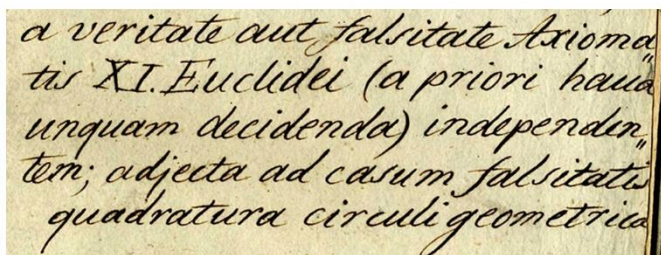 a veritate aut falsitate Axioma„
tis XI. Euclidei (a priori haud
unquam decidenda) independen„
tem; adjecta ad casum falsitatis
quadratura circuli geometrica